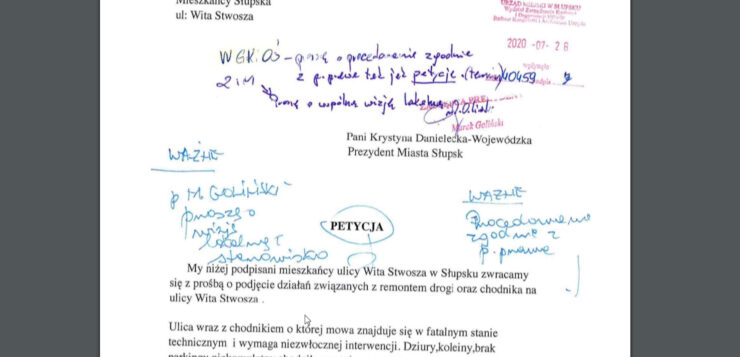 Mieszkańcy Słupska
ul: Wita Stwosza
URZĄD MIEJSKI W SŁUPSKU
2020 -07- 28
WGKiOŚ - proszę o procedowanie zgodnie
z p. prawa tak jak petycje (termin) 10459
ZIM
Proszę o wspólną wizję lokalną
Marek Goliński
Pani Krystyna Danielecka-Wojewódzka
Prezydent Miasta Słupsk
WAŻNE
p M. GOLIŃSKI
proszę o
wizję
lokalną i
stanowisko
WAŻNE
Procedowanie
zgodnie z
p. prawa
PETYCJA
My niżej podpisani mieszkańcy ulicy Wita Stwosza w Słupsku zwracamy
się z prośbą o podjęcie działań związanych z remontem drogi oraz chodnika na
ulicy Wita Stwosza .
Ulica wraz z chodnikiem o której mowa znajduje się w fatalnym stanie
technicznym i wymaga niezwłocznej interwencji. Dziury,koleiny,brak